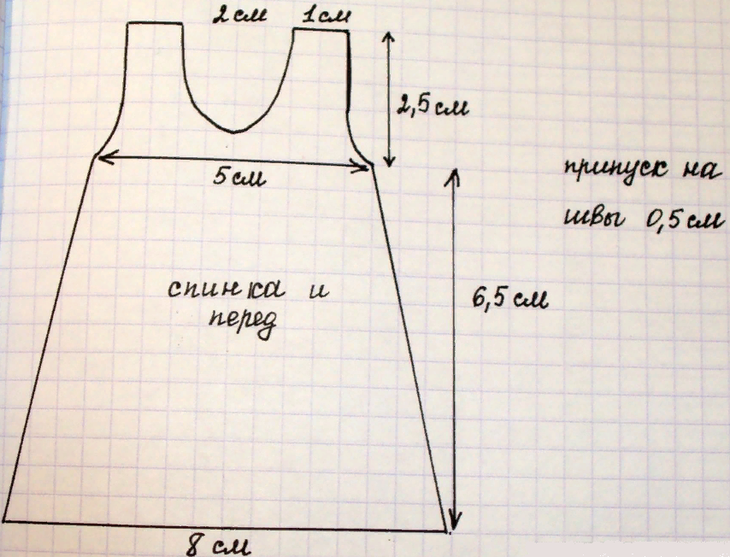 2 см 1 см
2,5 см
5 см
припуск на
швы 0,5 см
спинка и
перед
6,5 см
8 см